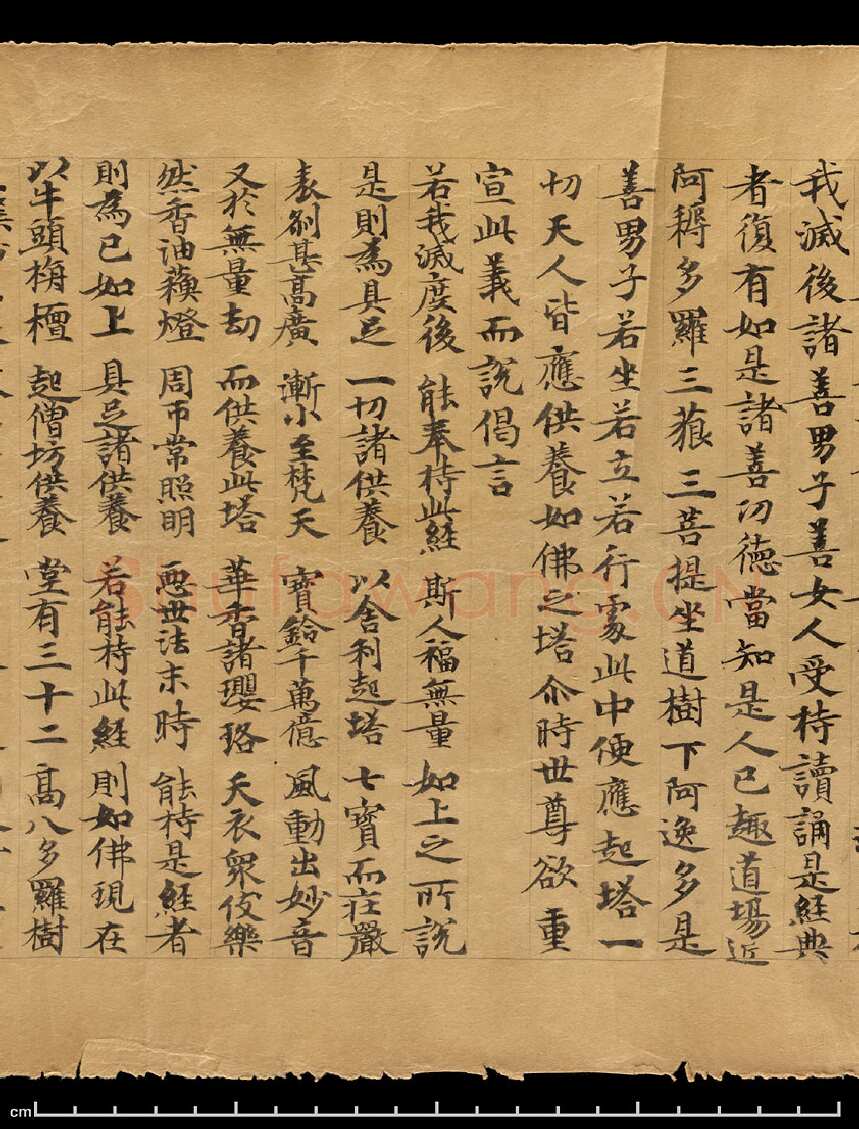 我滅後諸善男子善女人受持讀誦是經典
者復有如是諸善功德當知是人已趣道場近
阿耨多羅三藐三菩提坐道樹下阿逸多是
善男子若坐若立若行處此中便應起塔一
切天人皆應供養如佛之塔尒時世尊欲重
宣此義而說偈言
若我滅度後 能奉持此經 斯人福無量 如上之所說
是則為具足 一切諸供養 以舍利起塔 七寶而莊嚴
表剎甚高廣 漸小至梵天 寶鈴千萬億 風動出妙音
又於無量劫 而供養此塔 華香諸瓔珞 天衣眾伎樂
然香油蘓燈 周帀常照明 惡世法末時 能持是經者
則為已如上 具足諸供養 若能持此經 則如佛現在
以牛頭栴檀 起僧坊供養 堂有三十二 高八多羅樹
Shufawang.CN
cm